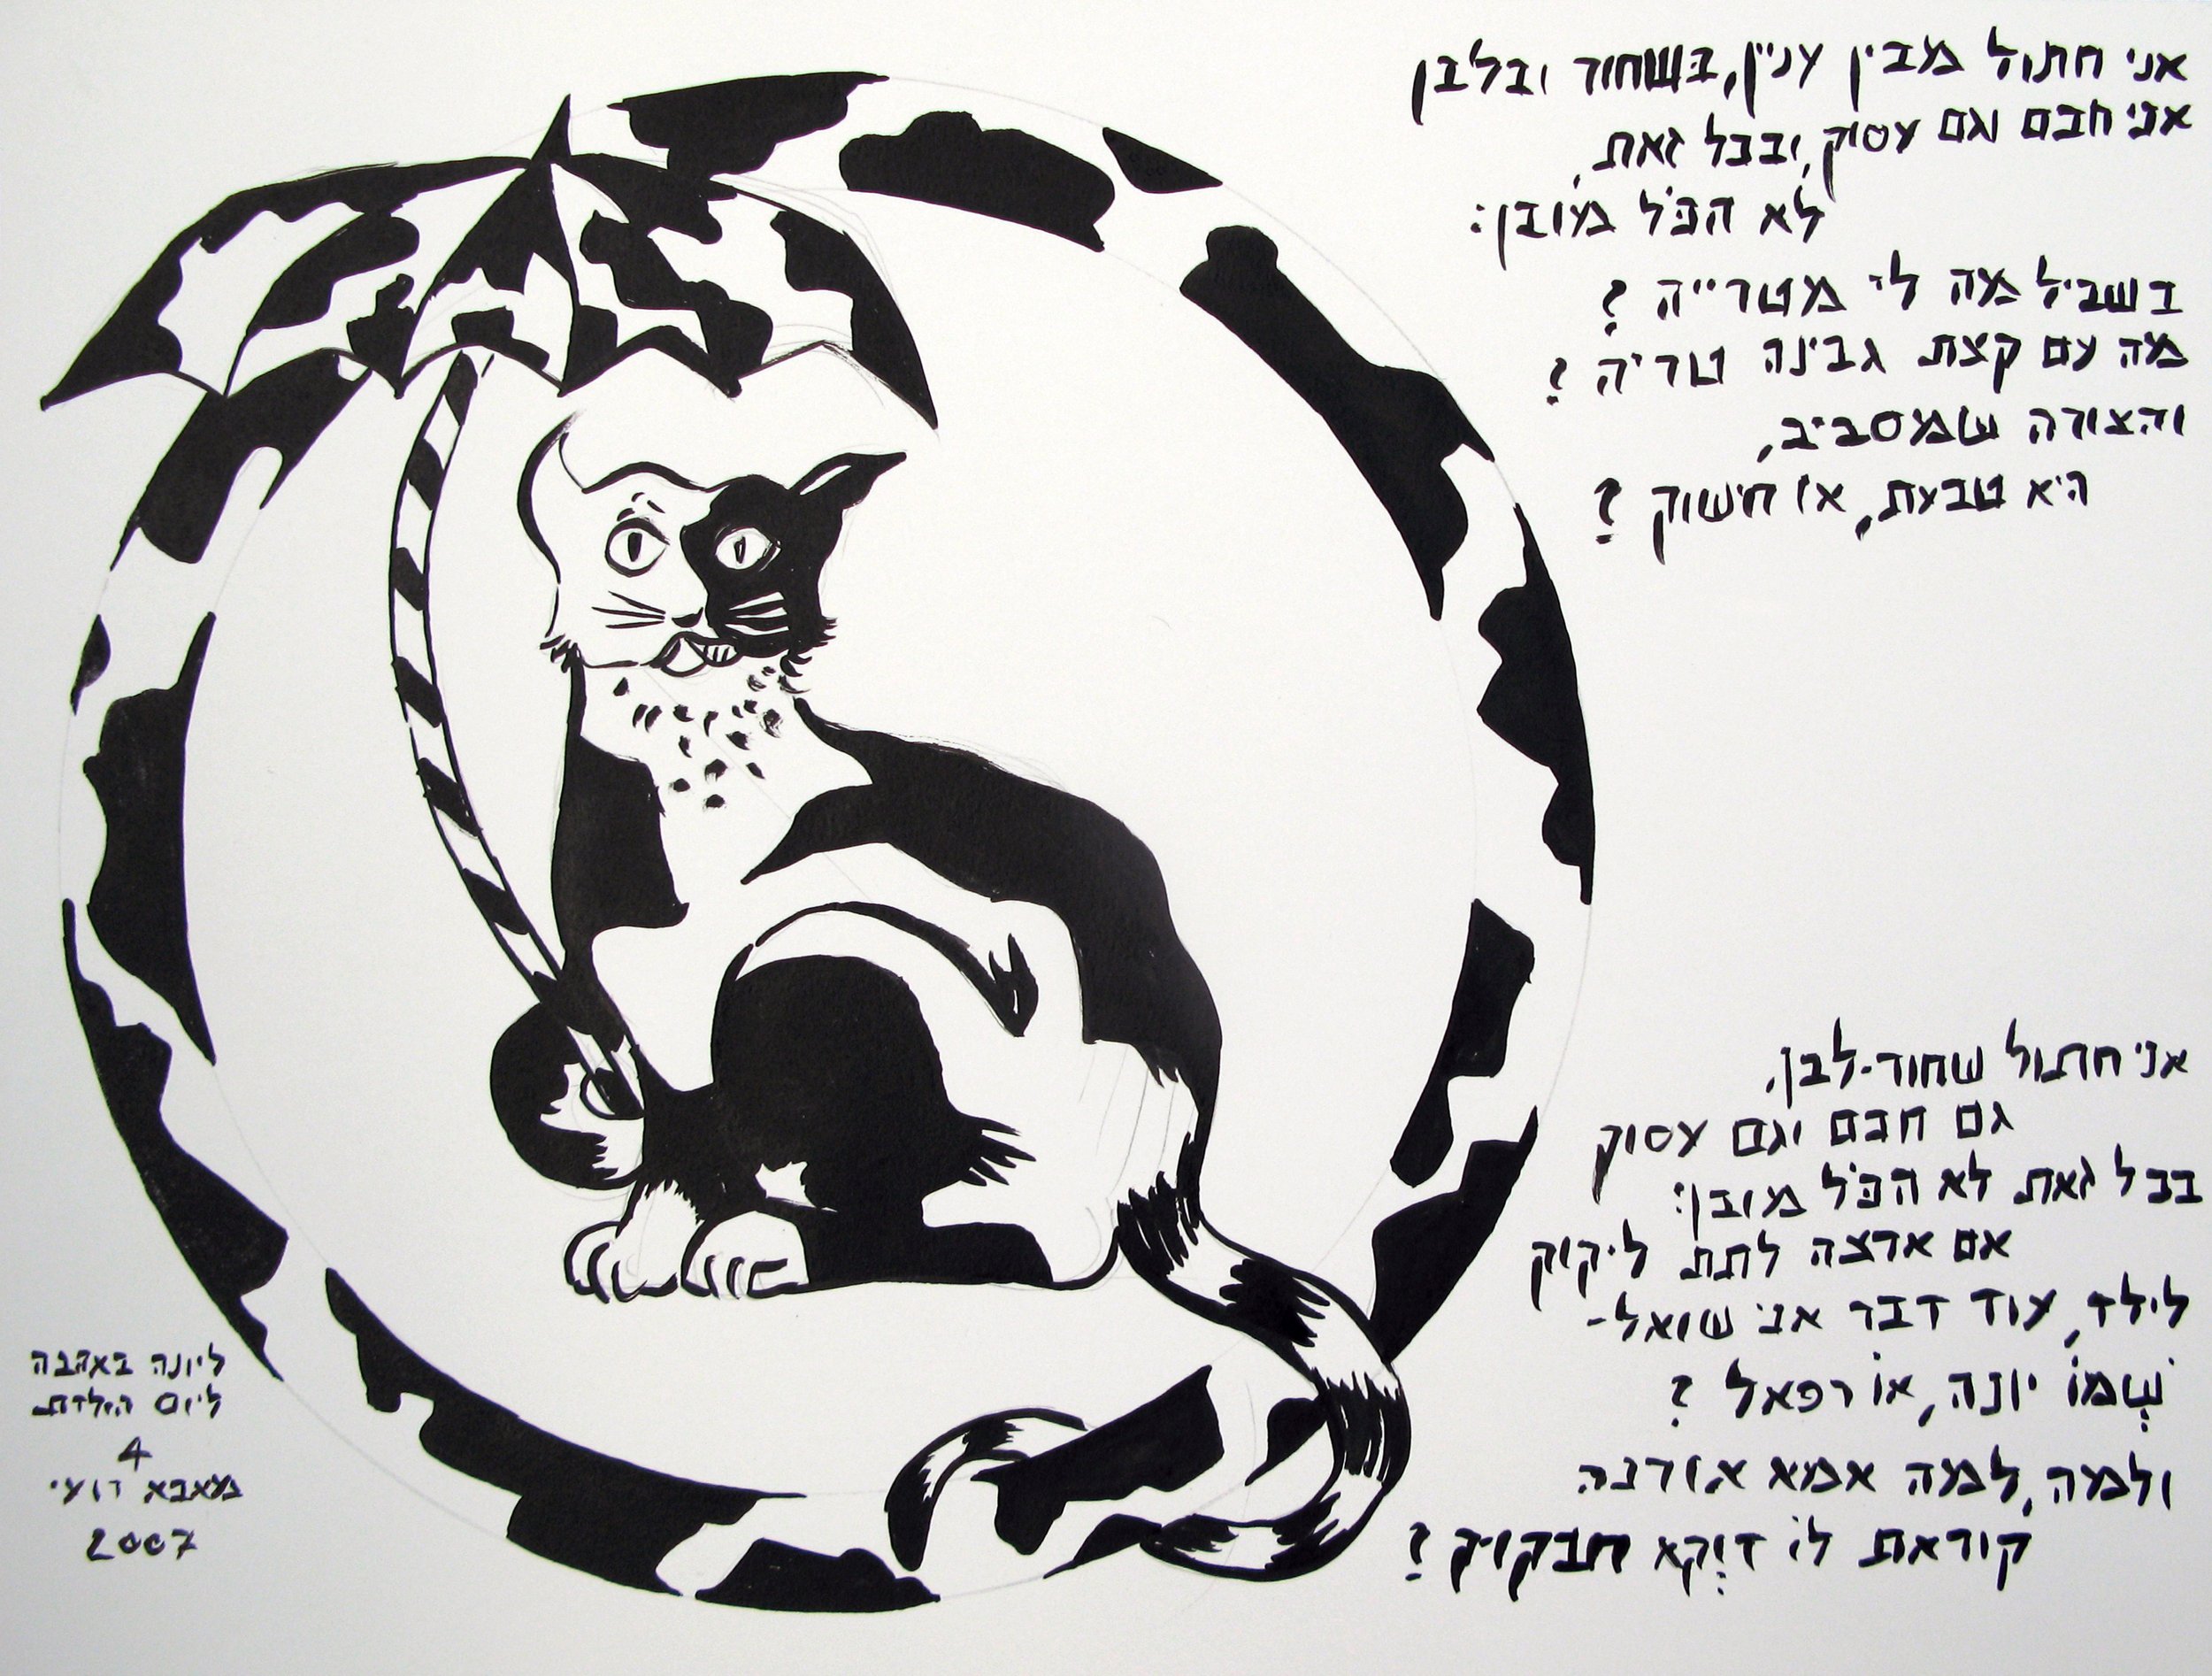 אני חתול מבין ענין, בשחור ובלבן
אני חכם וגם עסוק, ובכל זאת,
לא הכל מובן:
בשביל מה לי מטרייה?
מה עם קצת גבינה טריה?
והצורה שמסביב,
היא טבעת, או חישוק?
אני חתול שחור-לבן,
גם חכם וגם עסוק
בכל זאת לא הכל מובן:
אם ארצה לתת ליקוק
לילד, עוד דבר אני שואל-
שְׁמוֹ יונה, אוֹ רפאל?
ולמה, למה אמא אורנה
קוראת לוֹ דוקא חבקוק?
ליונה באהבה
ליום הולדת
4
מאבא רועי
2007